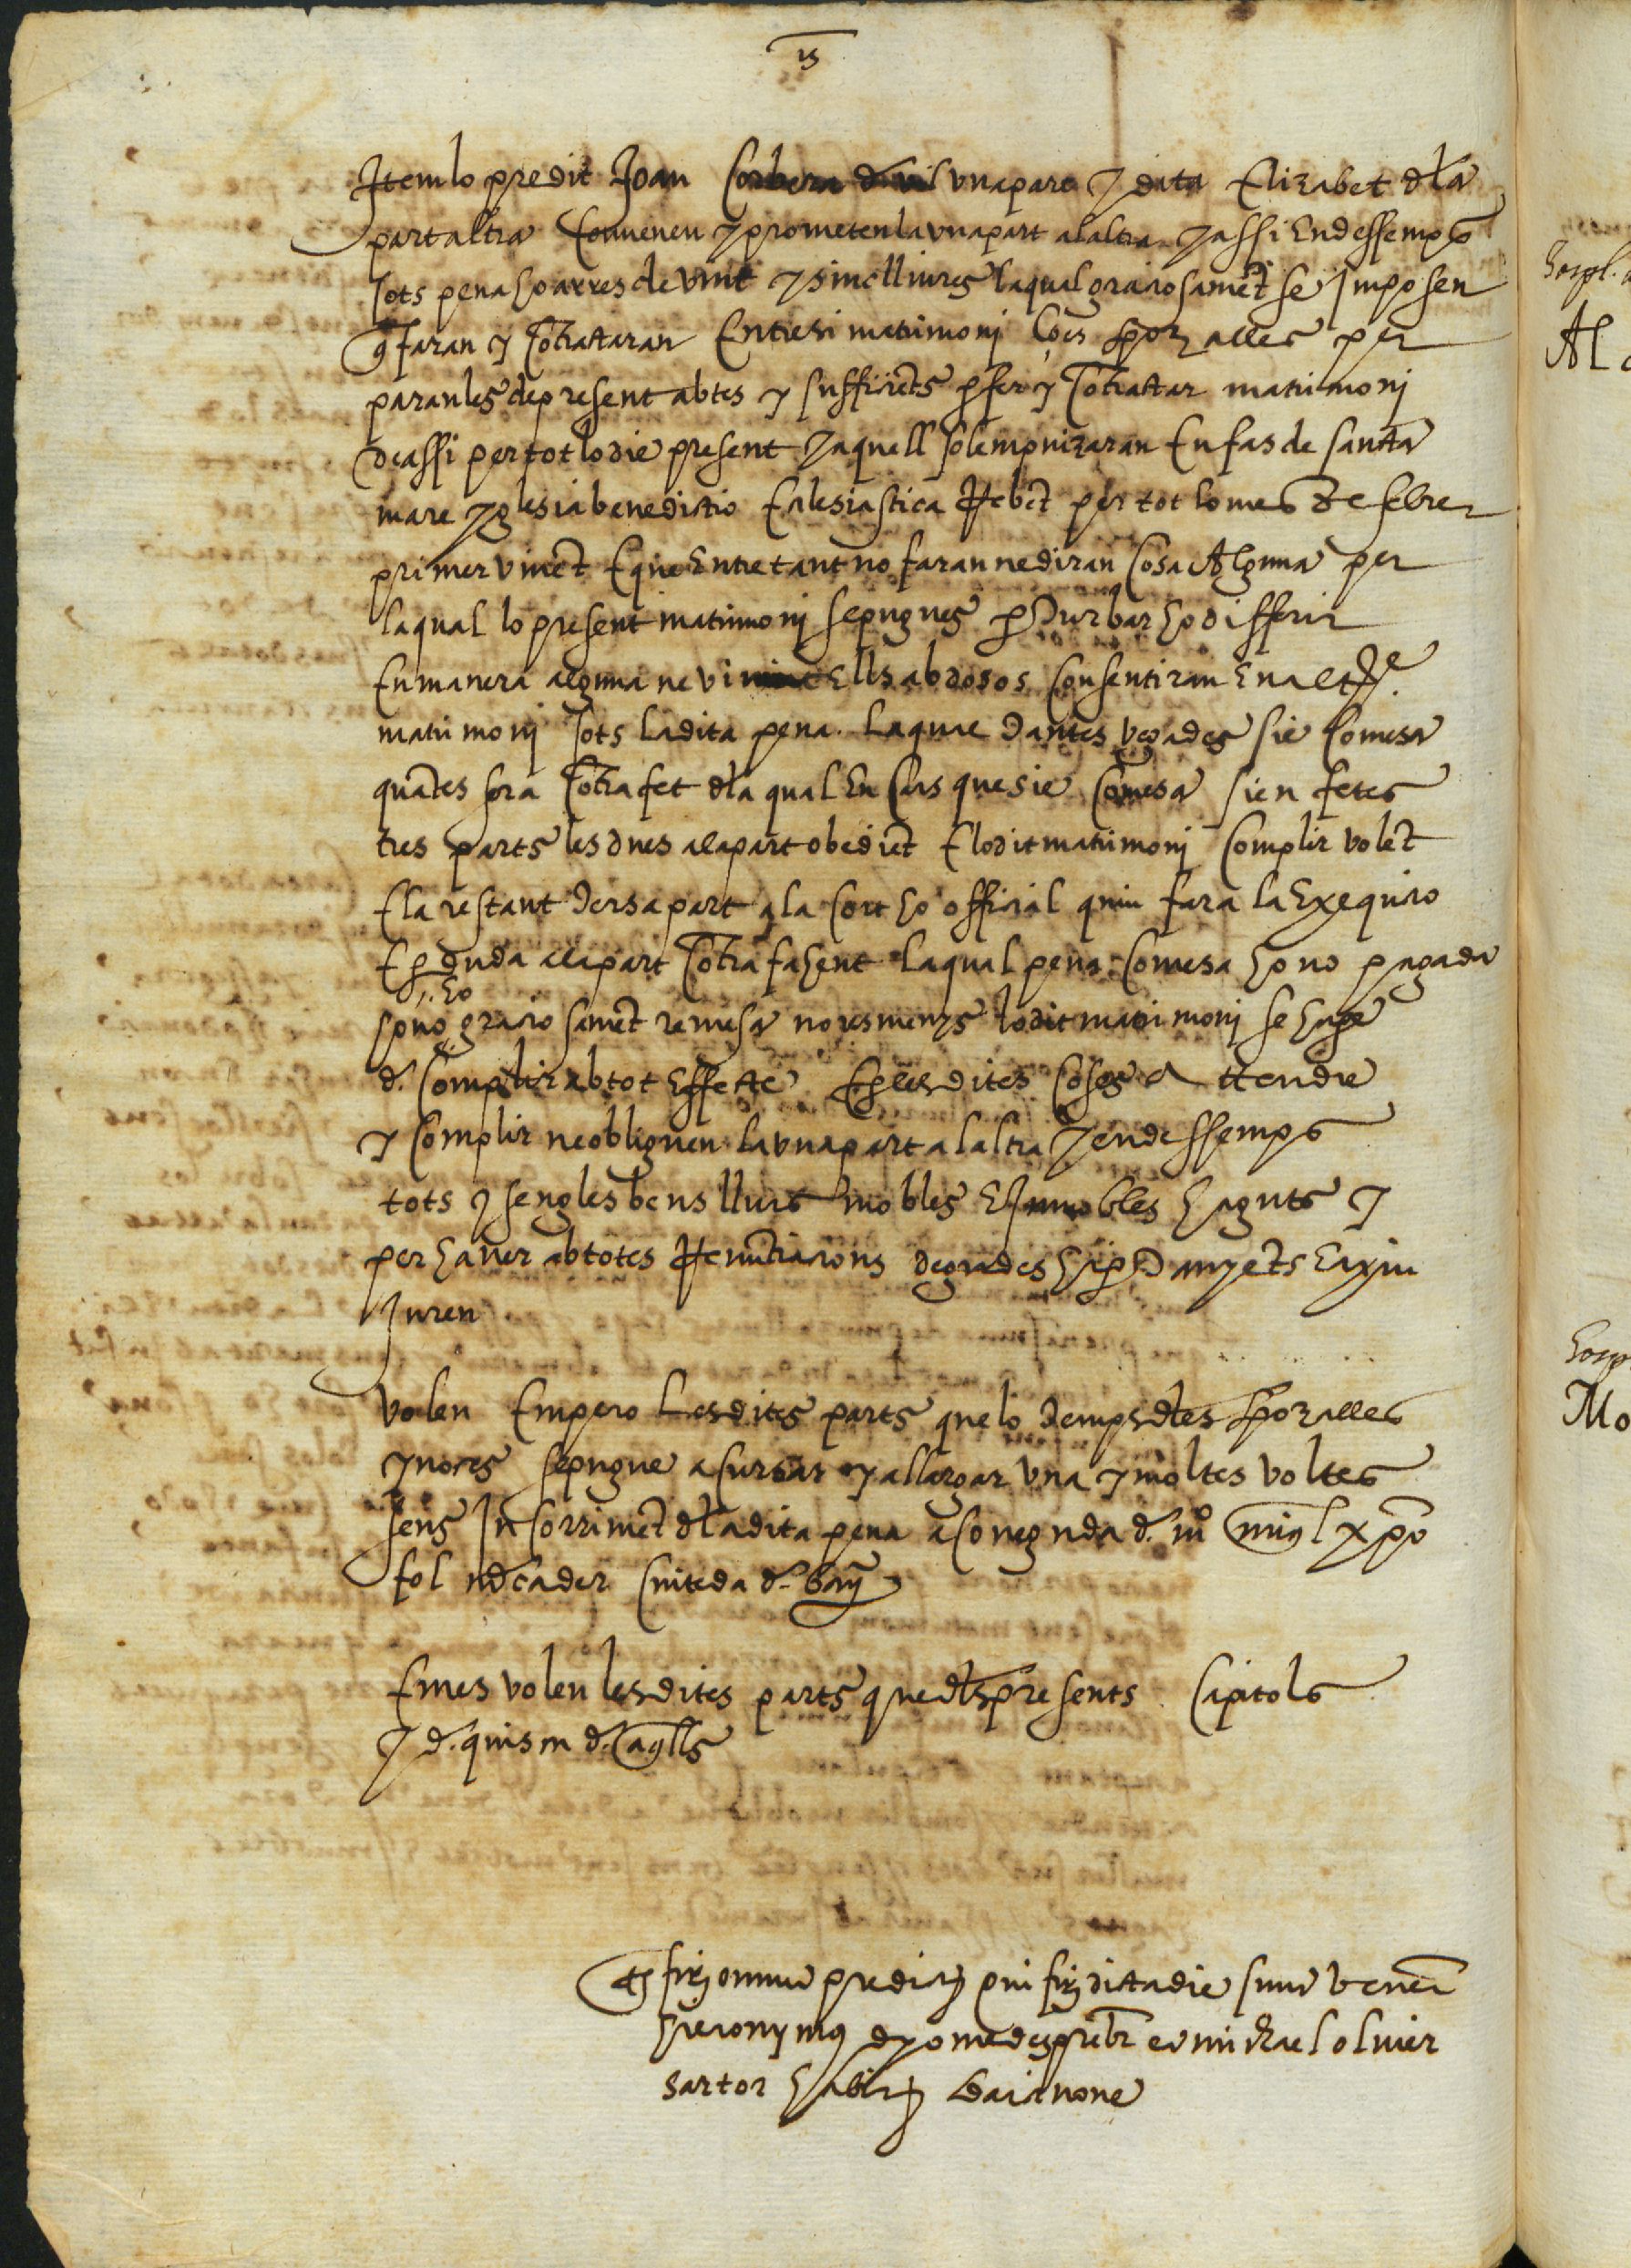 Item lo predit Joan Corbera vna part y data Elizabet dla
part altra Conuenen y prometen la vna part alaltra y assi Endessemps
sots pena ho arres de vint y sinc lliures laqual graciosamēt se Imposen
q̄ faran y Cōtractaran Entresi matrimonj ço es spozalles per
paraules de present abtes y sufficiēts p fer y Cōtractar matrimonj
deassi per tot lo die present y aquell solempnizaran En fas de sancta
mare yglesia benedictio Eclesiastica Rebēt per tot lo mes de febrer
primer vinēt E que Entretant no faran ne diran Cosa Alguna per
laqual lo present matrimonj se pugues pturbar ho differir
En manera alguna ne Ells ab dosos Consentiran En altre
matrimonj sots la dita pena. Laqual tantes vegades sie Comesa
quātes sera Cōtrafet dla qual En Cas que sie Comesa sien fetes
tres parts les dues ala part obediēt E lo dit matrimonj Complir volēt
E la restant tersa part a la Cort ho official quin fara la Exequcio
E pduda ala part Cōtrafahent Laqual pena Comesa ho no pagada
ho
graciosamēt remesa nores menys lo dit matrimonj se haje
d. Complir ab tot Effecte E p les dites Coses Attendre
y Complir ne obliguen la vna part alaltra y endessemps
tots y sengles bens llurs mobles E Immobles haguts y
per hauer ab totes Renūtiacions degudes E ptanyēts E axiu
Juren
Volen Empero Les dites parts que lo temps dles spozalles
y noces se pugue acursar y allargar vna y moltes voltes
sens Incorrimēt dla dita pena a Coneguda d. mº miql xpo
fol Ciuteda d. bar
E mes volen les dites parts que dls presents Capitols
y d. quiscu d. aqlls
Tes firj omniu predictoꝝ qui firj dicta die sunt vener
Hieronymꝰ dyomedes prebr et michael oliuer
sartor habitꝝ barcinone